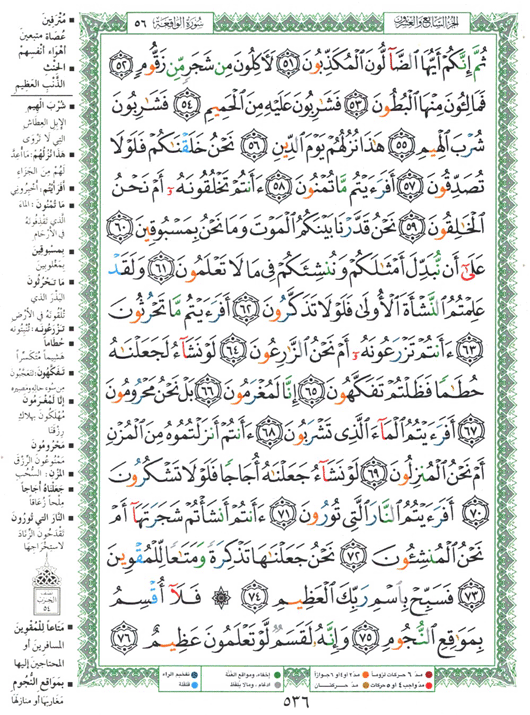 الجزء السابع والعشرون
سورة الواقعة ٥٦
ثُمَّ إِنَّكُمْ أَيُّهَا الضَّآلُّونَ الْمُكَذِّبُونَ ٥١ لَأَكِلُونَ مِن شَجَرٍ مِّن زَقُّومٍ ٥٢
فَمَالِئُونَ مِنْهَا الْبُطُونَ ٥٣ فَشَارِبُونَ عَلَيْهِ مِنَ الْحَمِيمِ ٥٤ فَشَارِبُونَ
شُرْبَ الْهِيمِ ٥٥ هَٰذَا نُزُلُهُمْ يَوْمَ الدِّينِ ٥٦ نَحْنُ خَلَقْنَاكُمْ فَلَوْلَا
تُصَدِّقُونَ ٥٧ أَفَرَءَيْتُم مَّا تُمْنُونَ ٥٨ ءَأَنتُمْ تَخْلُقُونَهُۥٓ أَمْ نَحْنُ
الْخَالِقُونَ ٥٩ نَحْنُ قَدَّرْنَا بَيْنَكُمُ الْمَوْتَ وَمَا نَحْنُ بِمَسْبُوقِينَ ٦٠
عَلَىٰٓ أَن نُّبَدِّلَ أَمْثَالَكُمْ وَنُنشِئَكُمْ فِي مَا لَا تَعْلَمُونَ ٦١ وَلَقَدْ
عَلِمْتُمُ النَّشْأَةَ الْأُولَىٰ فَلَوْلَا تَذَكَّرُونَ ٦٢ أَفَرَءَيْتُم مَّا تَحْرُثُونَ
٦٣ ءَأَنتُمْ تَزْرَعُونَهُۥٓ أَمْ نَحْنُ الزَّارِعُونَ ٦٤ لَوْ نَشَآءُ لَجَعَلْنَاهُ
حُطَامًا فَظَلْتُمْ تَفَكَّهُونَ ٦٥ إِنَّا لَمُغْرَمُونَ ٦٦ بَلْ نَحْنُ مَحْرُومُونَ
٦٧ أَفَرَءَيْتُمُ الْمَآءَ الَّذِي تَشْرَبُونَ ٦٨ ءَأَنتُمْ أَنزَلْتُمُوهُ مِنَ الْمُزْنِ
أَمْ نَحْنُ الْمُنزِلُونَ ٦٩ لَوْ نَشَآءُ جَعَلْنَاهُ أُجَاجًا فَلَوْلَا تَشْكُرُونَ
٧٠ أَفَرَءَيْتُمُ النَّارَ الَّتِي تُورُونَ ٧١ ءَأَنتُمْ أَنشَأْتُمْ شَجَرَتَهَآ أَمْ
نَحْنُ الْمُنشِئُونَ ٧٢ نَحْنُ جَعَلْنَاهَا تَذْكِرَةً وَمَتَاعًا لِّلْمُقْوِينَ
٧٣ فَسَبِّحْ بِاسْمِ رَبِّكَ الْعَظِيمِ ٧٤ ۞ فَلَآ أُقْسِمُ
بِمَوَاقِعِ النُّجُومِ ٧٥ وَإِنَّهُۥ لَقَسَمٌ لَّوْ تَعْلَمُونَ عَظِيمٌ ٧٦
مُتْرَفِينَ
عُصَاة متبعين
أهواء أنفسهم
الحنث
الذَّنْب العَظِيم
شُرْبَ الْهِيمِ
الإبل العِطاش
التي لا تروى
هذا نزلهم: ما أعد
لهم من الجزاء
أفرأيتم: أخبروني
ما تمنون: الماء
الذي تقذفونه
في الأرحام
بمسبوقين
بمغلوبين
ما تحرثون
البذر الذي
تلقونه في الأرض
تزرعونه: تنبتونه
حطاما
هشيما متكسرا
تفكهون: تتعجبون
من سوء حاله ومصيره
إنا لمغرمون
مهلكون بهلاك
رزقنا
محرومون
ممنوعون الرزق
المزن: السحب
جعلناه أجاجا
ملحا زعاقا
النار التي تورون
تقدحون الزناد
لاستخراجها
نصف
الحزب
٥٤
متاعا للمقوين
المسافرين أو
المحتاجين إليها
بمواقع النجوم
مغاربها أو منازلها
مدّ ٦ حركات لزوماً
مدّ ٢ أو ٤ أو ٦ جوازاً
إخفاء، ومواقع الغُنَّة
تفخيم الراء
مدّ واجب ٤ أو ٥ حركات
مدّ حركتان
ادغام، وما لا يُلفظ
قلقلة
٥٣٦